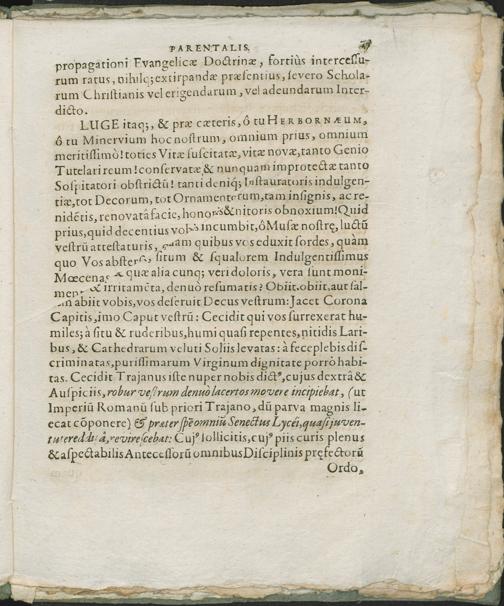 PARENTALIS.
propagationi Evangelicæ Doctrinæ, fortiùs intercessu-
rum ratus, nihilq; extirpandæ præsentius, severo Schola-
rum Christianis vel erigendarum, vel adeundarum Inter-
dicto.
LUGE itaq;, & præ cæteris, ô tu HERBORNÆUM,
ô tu Minervium hoc nostrum, omnium prius, omnium
meritissimò! toties Vitæ suscitatæ, vitæ novæ, tanto Genio
Tutelari reum! conservatæ & nunquam improtectæ tanto
Sospitatori obstrictũ! tanti deniq; Instauratoris indulgen-
tiæ, tot Decorum, tot Ornamentorum, tam insignis, ac re-
nidẽtis, renovatâ facie, honoris & nitoris obnoxium! Quid
prius, quid decentius incumbit, ô Musæ nostrę, luctũ
vestrũ attestaturis, quam quibus vos eduxit sordes, quàm
quo Vos situm & squalorem Indulgentissimus
Mœcenas quæ alia cunq; veri doloris, vera sunt moni-
& irritamẽta, denuò resumatis? Obiit, obiit, aut sal-
abiit vobis, vos deseruit Decus vestrum: Jacet Corona
Capitis, imo Caput vestrũ: Cecidit qui vos surrexerat hu-
miles; à situ & ruderibus, humi quasi repentes, nitidis Lari-
bus, & Cathedrarum veluti Soliis levatas: à fece plebis dis-
criminatas, purissimarum Virginum dignitate porrò habi-
tas. Cecidit Trajanus iste nuper nobis dictꝰ, cujus dextrâ &
Auspiciis, robur vestrum denuò lacertos movere incipiebat, (ut
Imperiũ Romanũ sub priori Trajano, dũ parva magnis li-
ceat cõponere) & præter spẽ omniũ Senectus Lycéi, quasi juven-
tute redditâ, revirescebat: Cujꝰ sollicitis, cujꝰ piis curis plenus
& aspectabilis Antecessorũ omnibus Disciplinis pręfectorũ
Ordo,